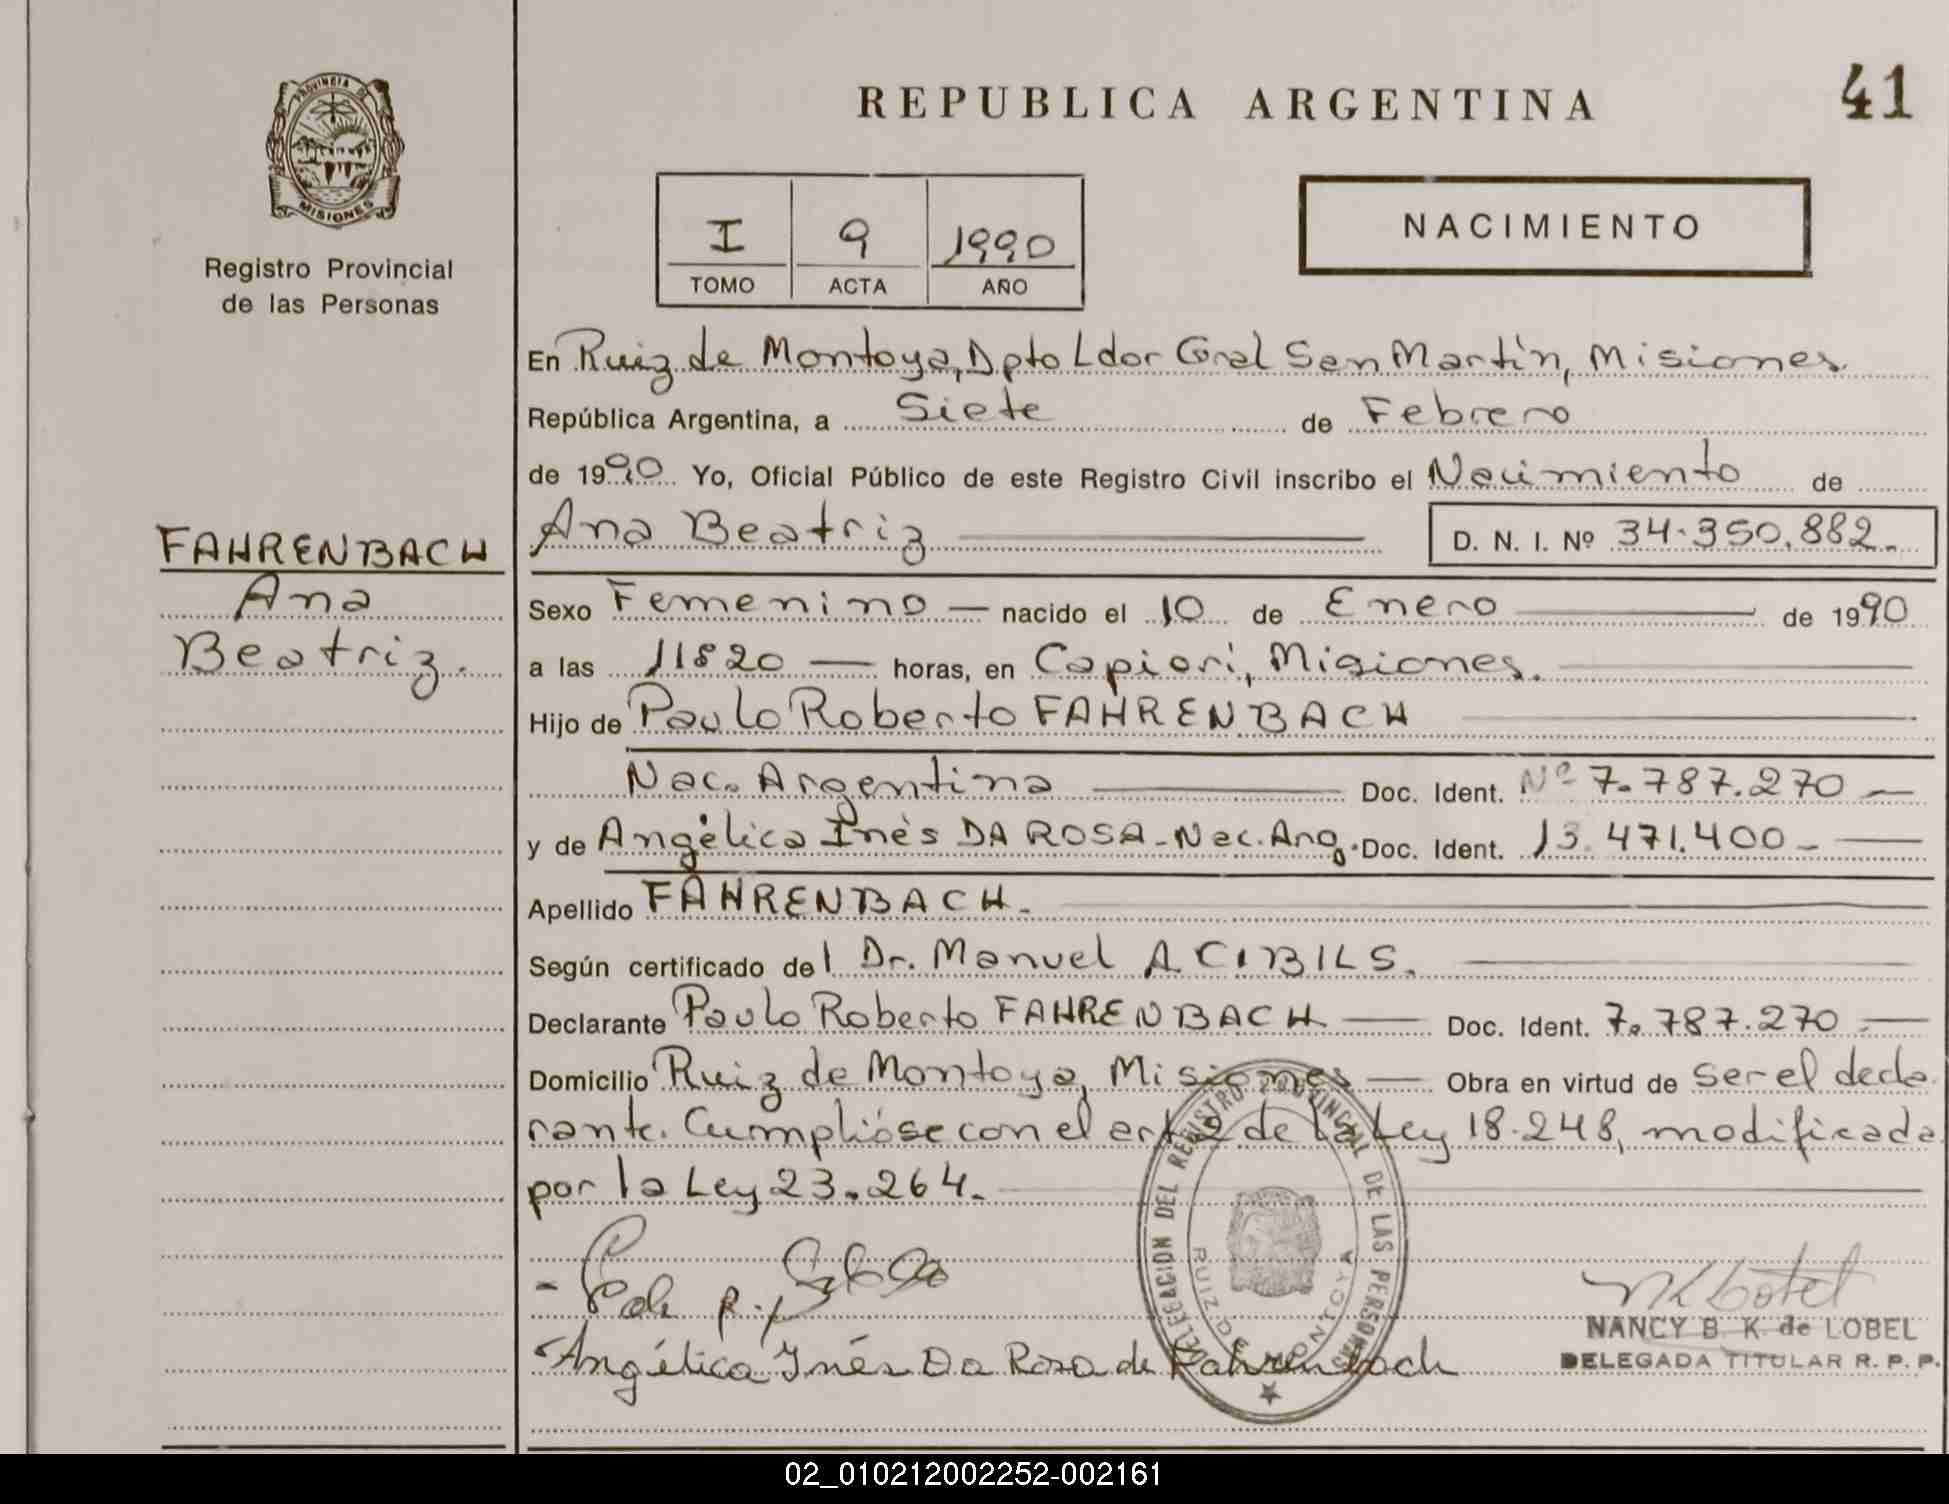 PROVINCIA DE
MISIONES
Registro Provincial
de las Personas
REPUBLICA ARGENTINA
41
I 9 1990
TOMO ACTA AÑO
NACIMIENTO
En Ruiz de Montoya, Dpto Ldor Gral San Martín, Misiones
República Argentina, a Siete de Febrero
de 1990 Yo, Oficial Público de este Registro Civil inscribo el Nacimiento de
Ana Beatriz D. N. I. Nº 34.350.882.-
FAHRENBACH
Ana
Beatriz.
Sexo Femenino — nacido el 10 de Enero — de 1990
a las 11:20 — horas, en Capioví, Misiones.
Hijo de Paulo Roberto FAHRENBACH
Nac. Argentina — Doc. Ident. Nº 7.787.270 —
y de Angélica Inés DA ROSA - Nac. Arg. Doc. Ident. 13.471.400 - —
Apellido FAHRENBACH. —
Según certificado del Dr. Manuel A CIBILS. —
Declarante Paulo Roberto FAHRENBACH — Doc. Ident. 7.787.270 —
Domicilio Ruiz de Montoya, Misiones — Obra en virtud de ser el decla
rante. Cumplióse con el art 2 de la Ley 18.248, modificada
por la Ley 23.264. —
DELEGACION DEL REGISTRO PROVINCIAL DE LAS PERSONAS
RUIZ DE MONTOYA
NANCY B. K. de LOBEL
DELEGADA TITULAR R. P. P.
Angélica Inés Da Rosa de Fahrenbach
02_010212002252-002161